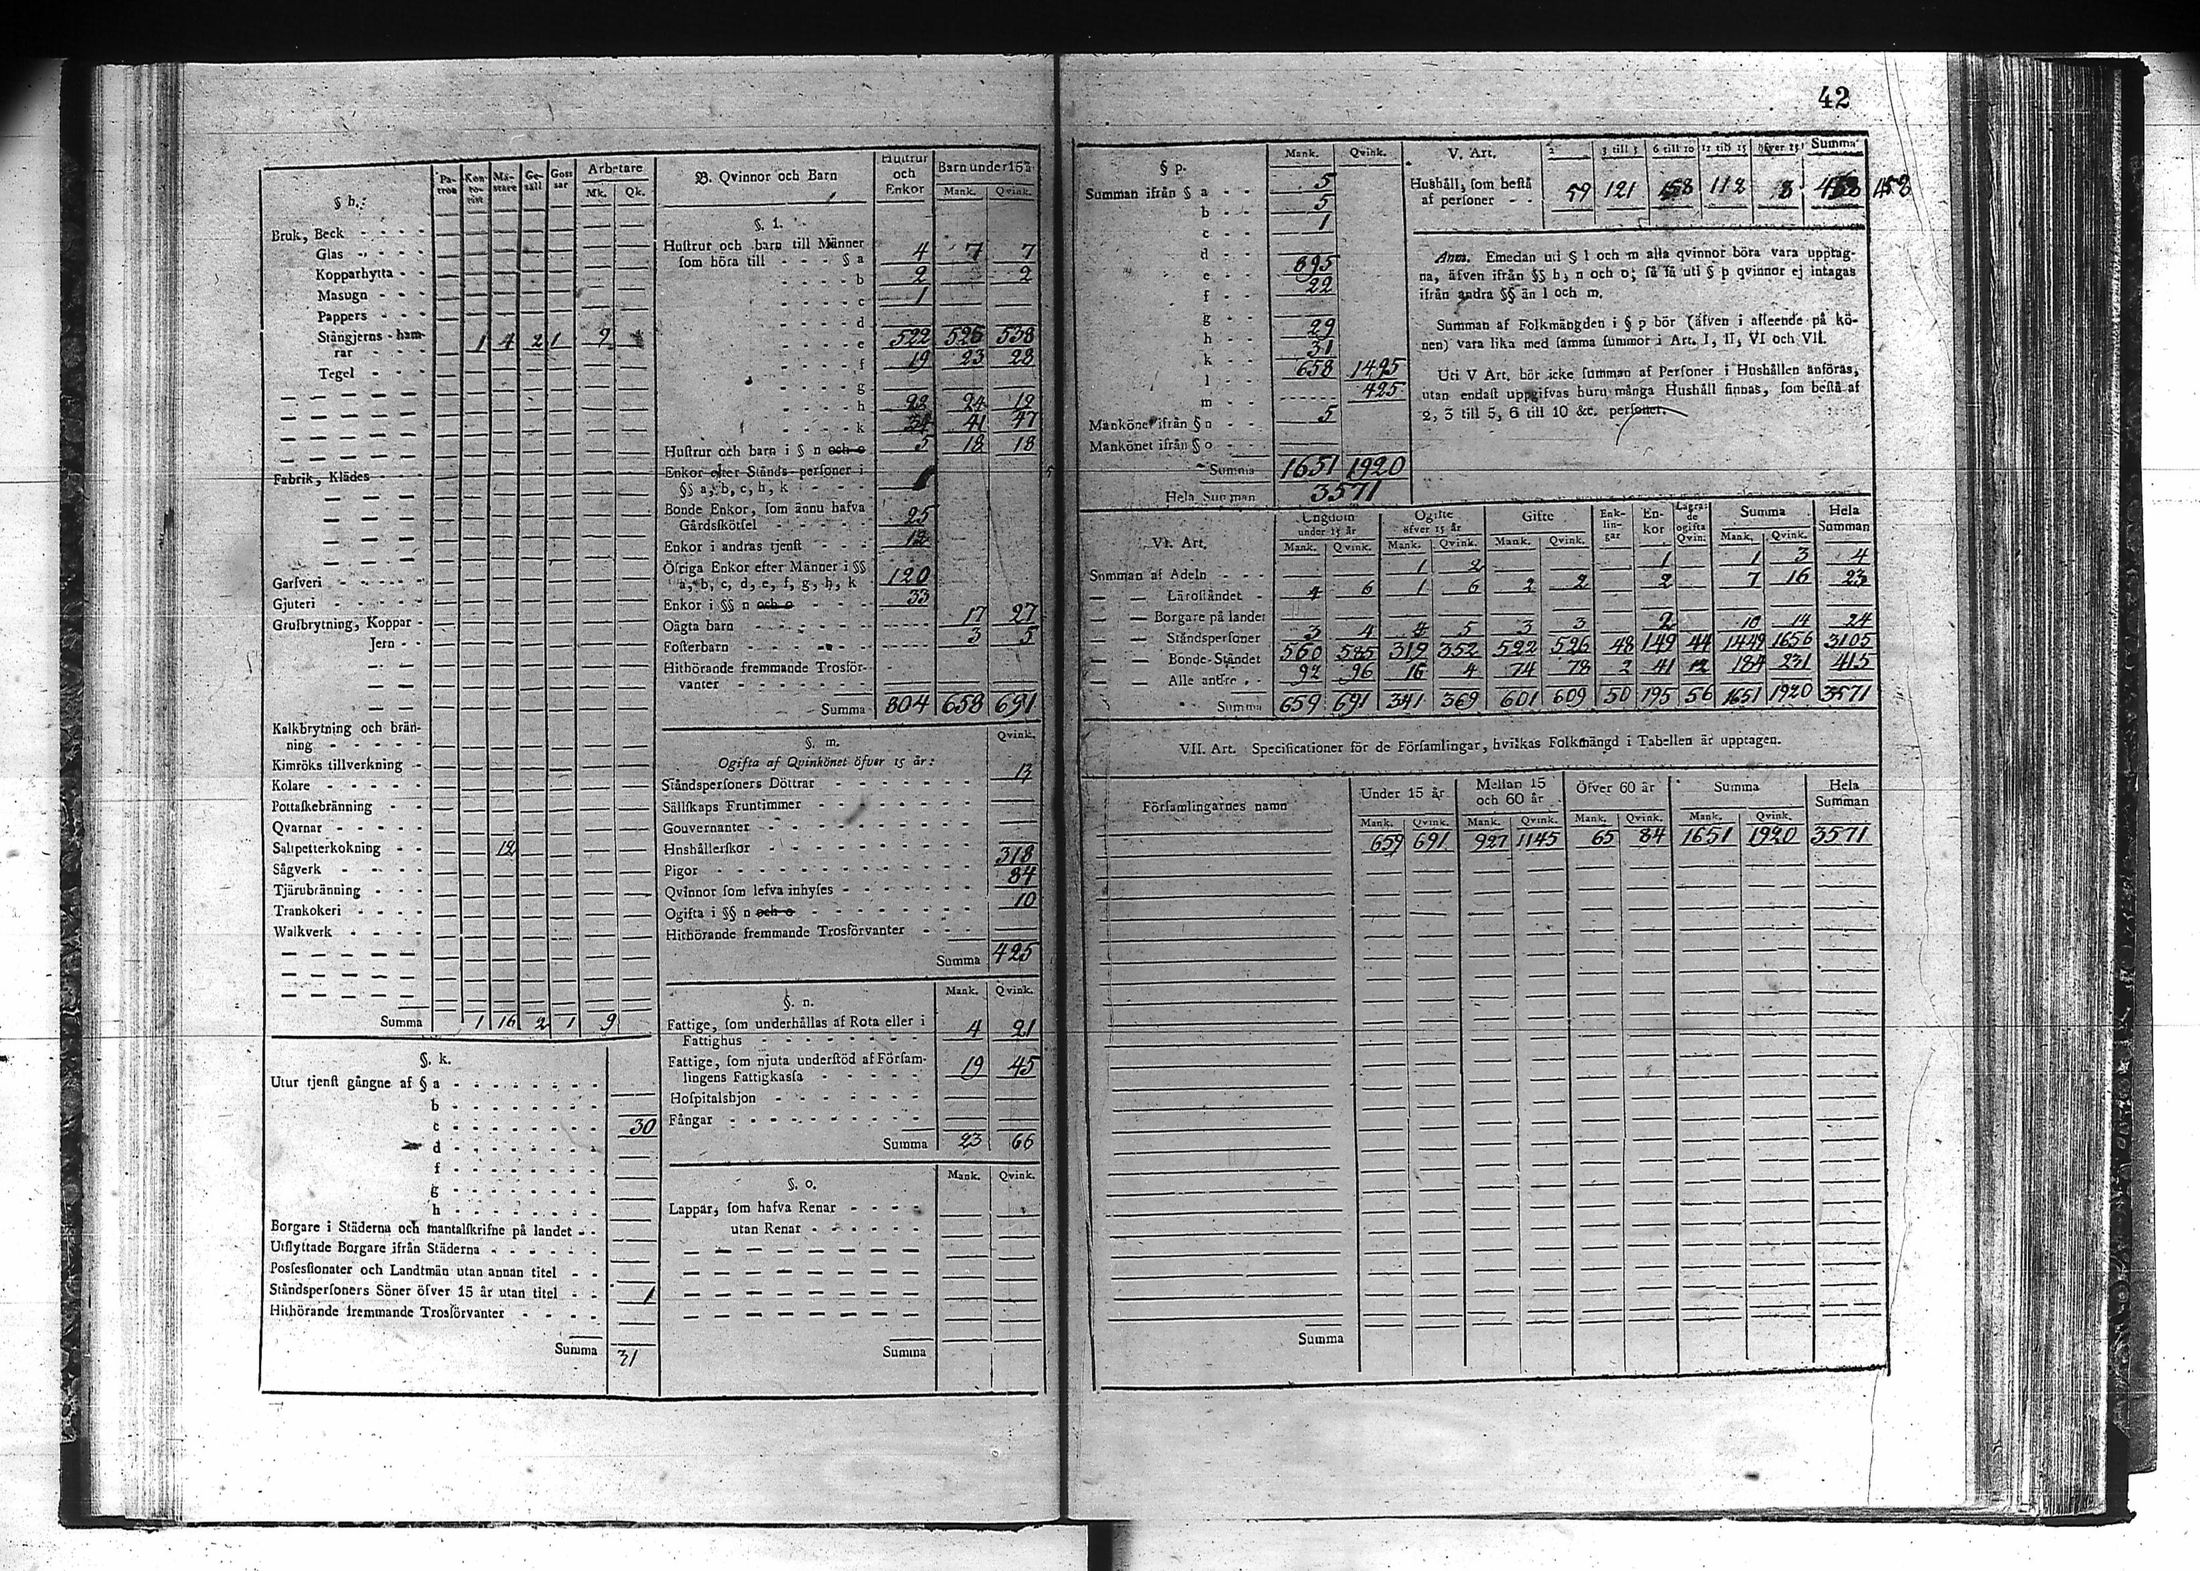 42
§ h.:
Pa-
tron
Kon-
to-
rist
Mä-
stare
Ge-
säll
Gos-
sar
Arbetare
Mk. Qk.
Bruk, Beck
Glas
Kopparhytta
Masugn
Pappers
Stångjerns-ham-
rar 1 4 2 1 9
Tegel
Fabrik, Klädes
Garfveri
Gjuteri
Grufbrytning, Koppar
Jern
Kalkbrytning och brän-
ning
Kimröks tillverkning
Kolare
Pottaskebränning
Qvarnar
Saltpetterkokning 12
Sågverk
Tjärubränning
Trankokeri
Walkverk
Summa 1 16 2 1 9
§. k.
Utur tjenst gångne af § a
b
c 30
d
f
g
h
Borgare i Städerna och mantalskrifne på landet
Utflyttade Borgare ifrån Städerna
Possessionater och Landtmän utan annan titel
Ståndspersoners Söner öfver 15 år utan titel 1
Hithörande fremmande Trosförvanter
Summa 31
B. Qvinnor och Barn
Hustrur
och
Enkor
Barn under 15 å
Mank. Qvink.
§. 1.
Hustrur och barn till Männer
som höra till § a 4 7 7
b 2 2
c 1
d
e 522 526 538
f 19 23 28
g
h 22 24 12
k 41 47
Hustrur och barn i § n och o 5 18 18
Enkor efter Stånds-personer i
§§ a, b, c, h, k
Bonde Enkor, som ännu hafva
Gårdsskötsel 25
Enkor i andras tjenst 12
Öfriga Enkor efter Männer i §§
a, b, c, d, e, f, g, h, k 120
Enkor i §§ n och o 33
Oägta barn 17 27
Fosterbarn 3 5
Hithörande fremmande Trosför-
vanter
Summa 804 658 691
§. m.
Qvink.
Ogifta af Qvinkönet öfver 15 år:
Ståndspersoners Döttrar 13
Sällskaps Fruntimmer
Gouvernanter
Hushållerskor
Pigor 318
Qvinnor som lefva inhyses 84
Ogifta i §§ n och o 10
Hithörande fremmande Trosförvanter
Summa 425
§. n.
Mank. Qvink.
Fattige, som underhållas af Rota eller i
Fattighus 4 21
Fattige, som njuta understöd af Försam-
lingens Fattigkassa 19 45
Hospitalshjon
Fångar
Summa 23 66
§. o.
Mank. Qvink.
Lappar, som hafva Renar
utan Renar
Summa
§ p.
Mank. Qvink.
Summan ifrån § a 5
b 5
c 1
d
e 895
f 22
g
h 29
k 31
l 658 1495
m 425
Mankönet ifrån § n 5
Mankönet ifrån § o
Summa 1651 1920
Hela Summan 3571
V. Art.
2 3 till 5 6 till 10 11 till 15 öfver 15 Summa
Hushåll, som bestå
af personer 59 121 158 112 8 458
Anm. Emedan uti § l och m alla qvinnor böra vara upptag-
na, äfven ifrån §§ h, n och o; så få uti § p qvinnor ej intagas
ifrån andra §§ än l och m.
Summan af Folkmängden i § p bör (äfven i afseende på kö-
nen) vara lika med samma summor i Art. I, II, VI och VII.
Uti V Art. bör icke summan af Personer i Hushållen anföras,
utan endast uppgifvas huru många Hushåll finnas, som bestå af
2, 3 till 5, 6 till 10 &c. personer.
VI. Art.
Ungdom
under 15 år
Ogifte
öfver 15 år
Gifte
Enk-
lin-
gar
En-
kor
Lägra-
de
ogifta
Qvin.
Summa
Hela
Summan
Mank. Qvink. Mank. Qvink. Mank. Qvink. Mank. Qvink.
Summan af Adeln 1 2 1 1 3 4
Läroståndet 4 6 1 6 2 2 2 7 16 23
Borgare på landet
Ståndspersoner 3 4 4 5 3 3 2 10 14 24
Bonde-Ståndet 560 585 319 352 522 526 48 149 44 1449 1656 3105
Alle andre 92 96 16 4 74 78 2 41 12 184 231 415
Summa 659 691 341 369 601 609 50 195 56 1651 1920 3571
VII. Art. Specificationer för de Församlingar, hvilkas Folkmängd i Tabellen är upptagen.
Församlingarnes namn
Under 15 år
Mellan 15
och 60 år
Öfver 60 år
Summa
Hela
Summan
Mank. Qvink. Mank. Qvink. Mank. Qvink. Mank. Qvink.
659 691 927 1145 65 84 1651 1920 3571
Summa